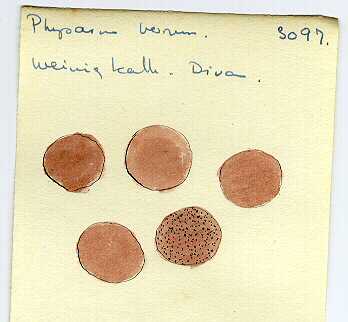 Physarum vernum. 3097.
Weinig kalk.